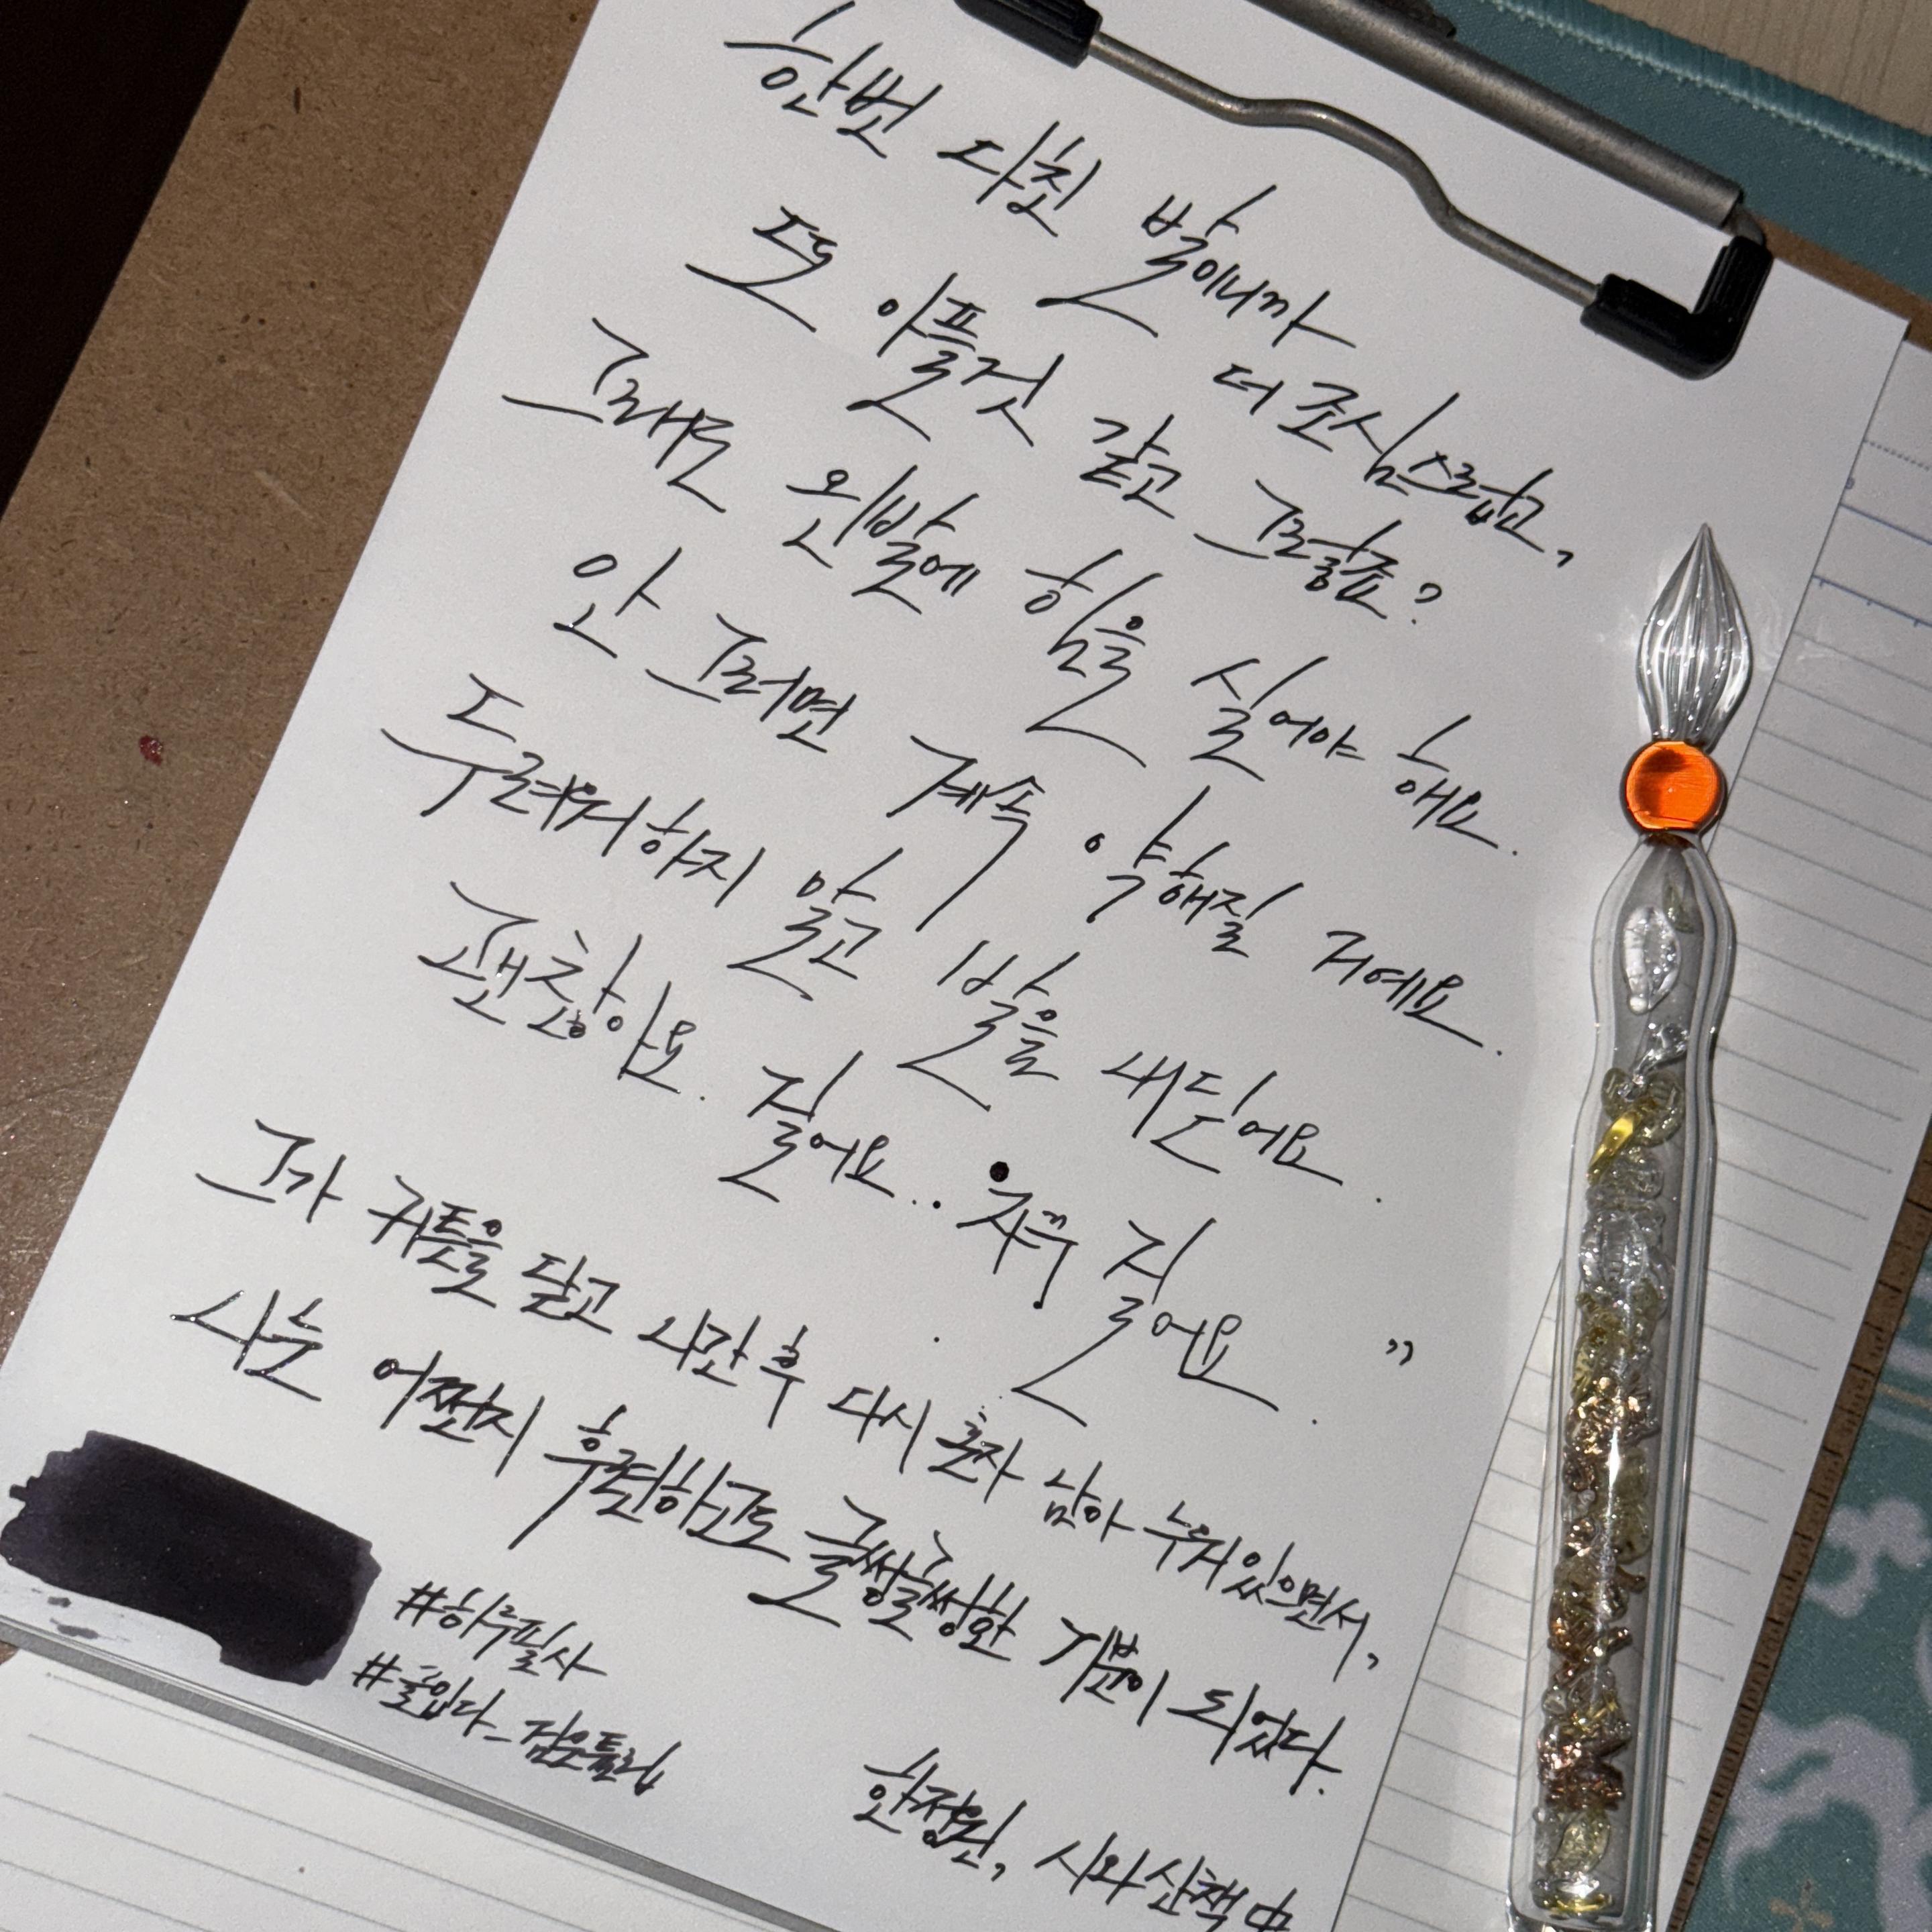 한번 다친 발이니까 더 조심스럽고,
또 아플것 같고 그렇죠?
그래도 왼발에 힘을 실어야 해요.
안 그러면 계속 약해질 거예요.
두려워하지 말고 발을 내딛어요.
괜찮아요. 걸어요.. 자꾸 걸어요. ”
그가 커튼을 닫고 나간 후 다시 혼자 남아 누워있으면서,
나는 어쩐지 후련하고도 글썽글썽한 기분이 되었다.
#하루필사
#울입다_검은튤립
한정원, 시와 산책 中